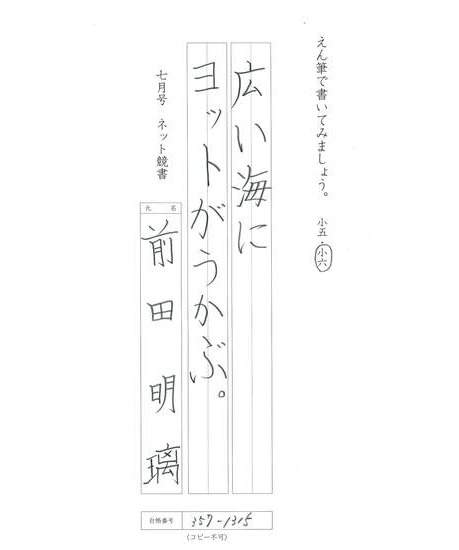 えん筆で書いてみましょう。 小五・小六
広い海に
ヨットがうかぶ。
七月号 ネット競書
氏名
前田明璃
台帳番号 357-1315
(コピー不可)